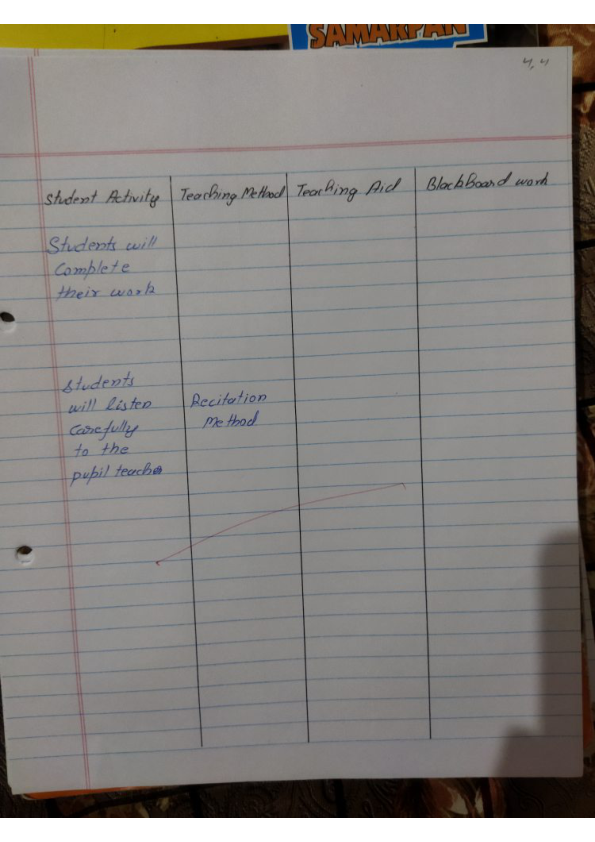 SAMARPAN
Student Activity Teaching Method Teaching Aid BlackBoard work
Students will
Complete
their work
Students
will listen
Carefully
to the
pupil teacher
Recitation
Method